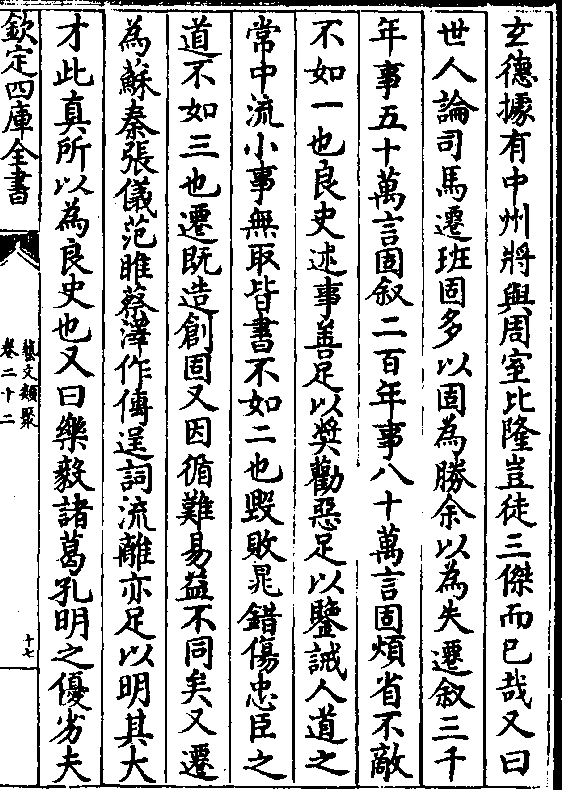 玄德據有中州將與周室比隆豈徒三傑而已哉又曰
世人論司馬遷班固多以固為勝余以為失遷叙三千
年事五十萬言固叙二百年事八十萬言固煩省不敵
不如一也良史述事善足以奬勸惡足以鑒誡人道之
常中流小事無取皆書不如二也毁敗晁錯傷忠臣之
道不如三也遷既造創固又因循難易益不同矣又遷
為蘇秦張儀范雎蔡澤作傳逞詞流離亦足以明其大
才此真所以為良史也又曰樂毅諸葛孔明之優劣夫
欽定四庫全書
藝文類聚
卷二十二
十七